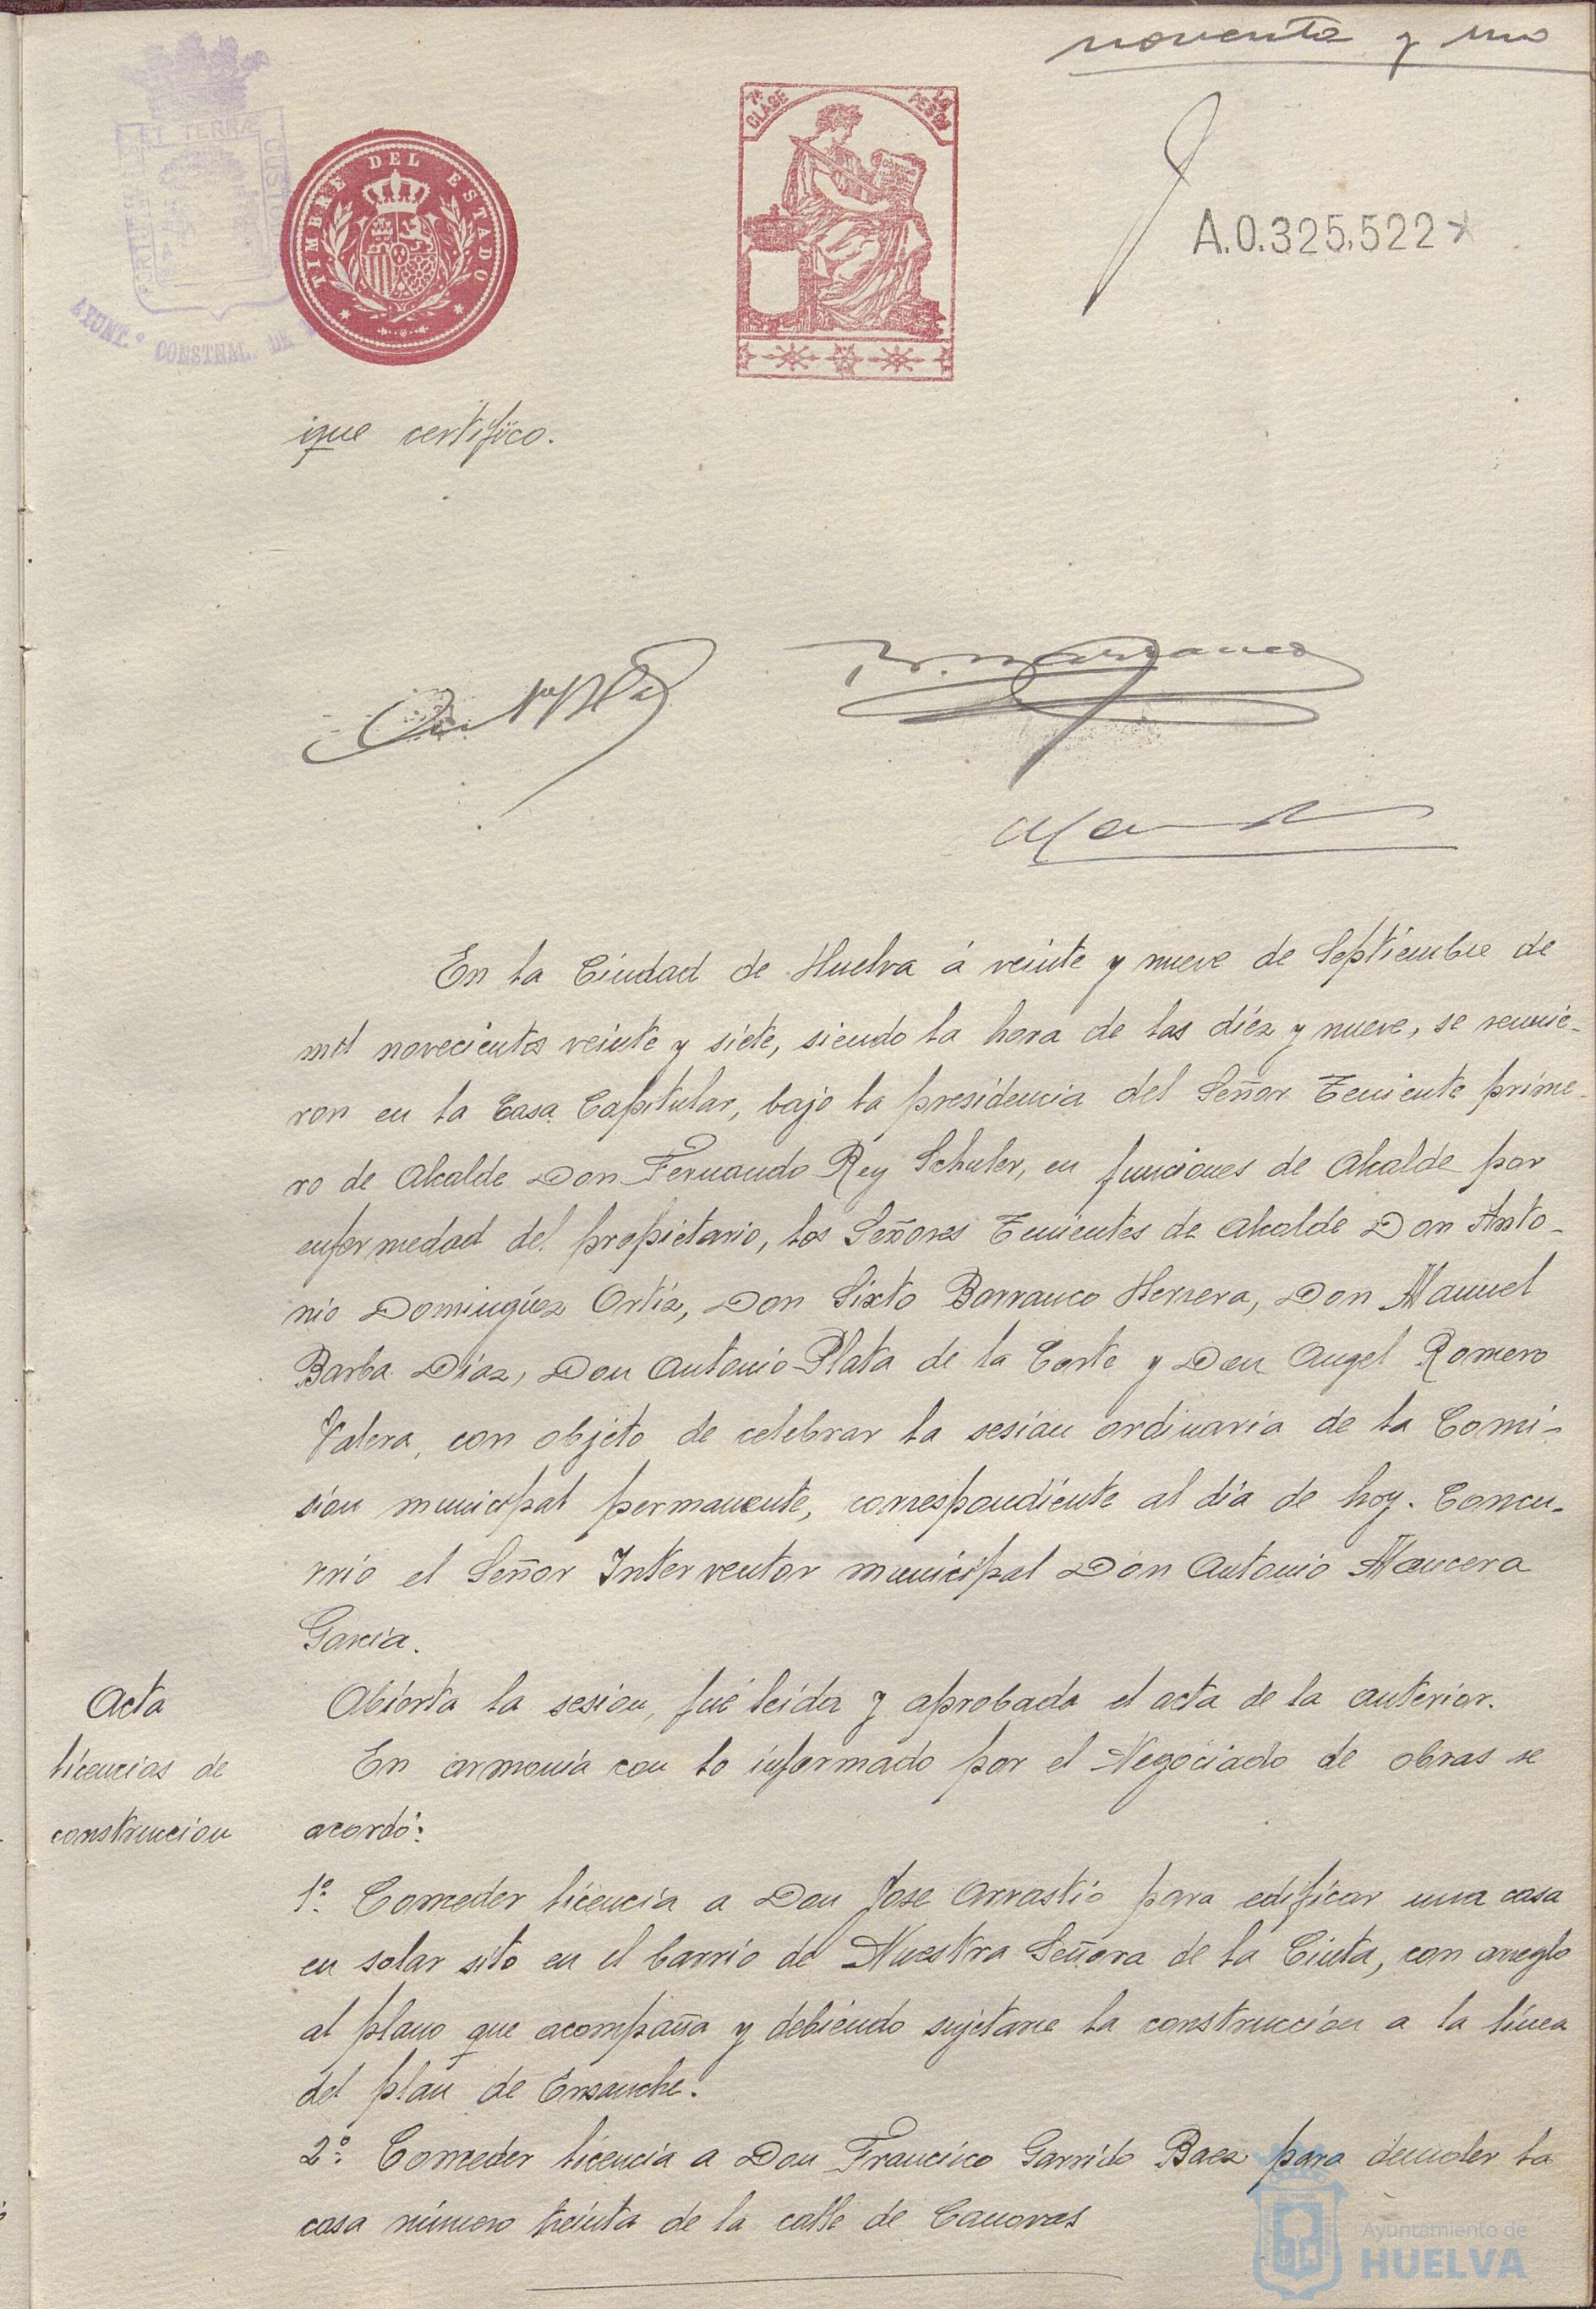 noventa y uno
PORTUS MARIS ET TERRÆ CUSTODIA
AYUNT.º CONSTNAL. DE
TIMBRE DEL ESTADO
7ª CLASE
PESETA
A.0.325,522
que certifico.
En la Ciudad de Huelva á veinte y nueve de Septiembre de
mil novecientos veinte y siete, siendo la hora de las diéz y nueve, se reunie-
ron en la Casa Capitular, bajo la presidencia del Señor Teniente prime-
ro de Alcalde Don Fernando Rey Schuler, en funciones de Alcalde por
enfermedad del propietario, los Señores Tenientes de Alcalde Don Anto-
nio Dominguez Ortíz, Don Sixto Barranco Herrera, Don Manuel
Barba Díaz, Don Antonio Plata de la Corte y Don Angel Romero
Valera, con objeto de celebrar la sesion ordinaria de la Comi-
sion municipal permanente, correspondiente al día de hoy. Concu-
rrió el Señor Interventor municipal Don Antonio Mancera
García.
Acta
Abierta la sesion, fué leida y aprobada el acta de la anterior.
licencias de
construccion
En armonía con lo informado por el Negociado de obras se
acordó:
1º. Conceder licencia a Don Jose Arrastio para edificar una casa
en solar sito en el barrio de Nuestra Señora de la Cinta, con arreglo
al plano que acompaña y debiendo sujetarse la construcción a la línea
del plan de Ensanche.
2º. Conceder licencia a Don Francisco Garrido Baez para demoler la
casa número treinta de la calle de Canovas
Ayuntamiento de
HUELVA